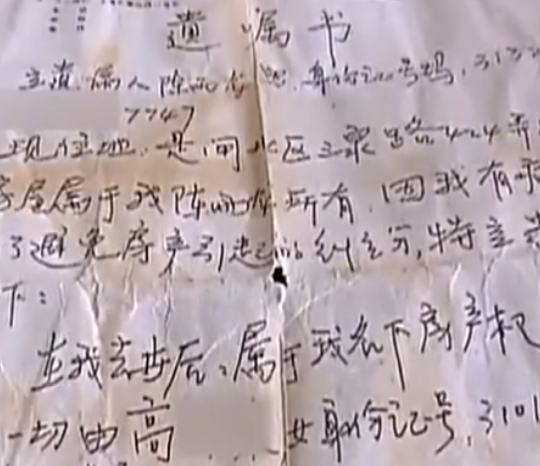 遗嘱书
立遗嘱人陈 身份证号码,3133
7747
现住地:是闸北区 424弄
房屋属于我陈 所有,因我有
了避免房产引起的纠纷,特立
下:
在我去世后,属于我名下房产权
一切由高 女身份证号,3101